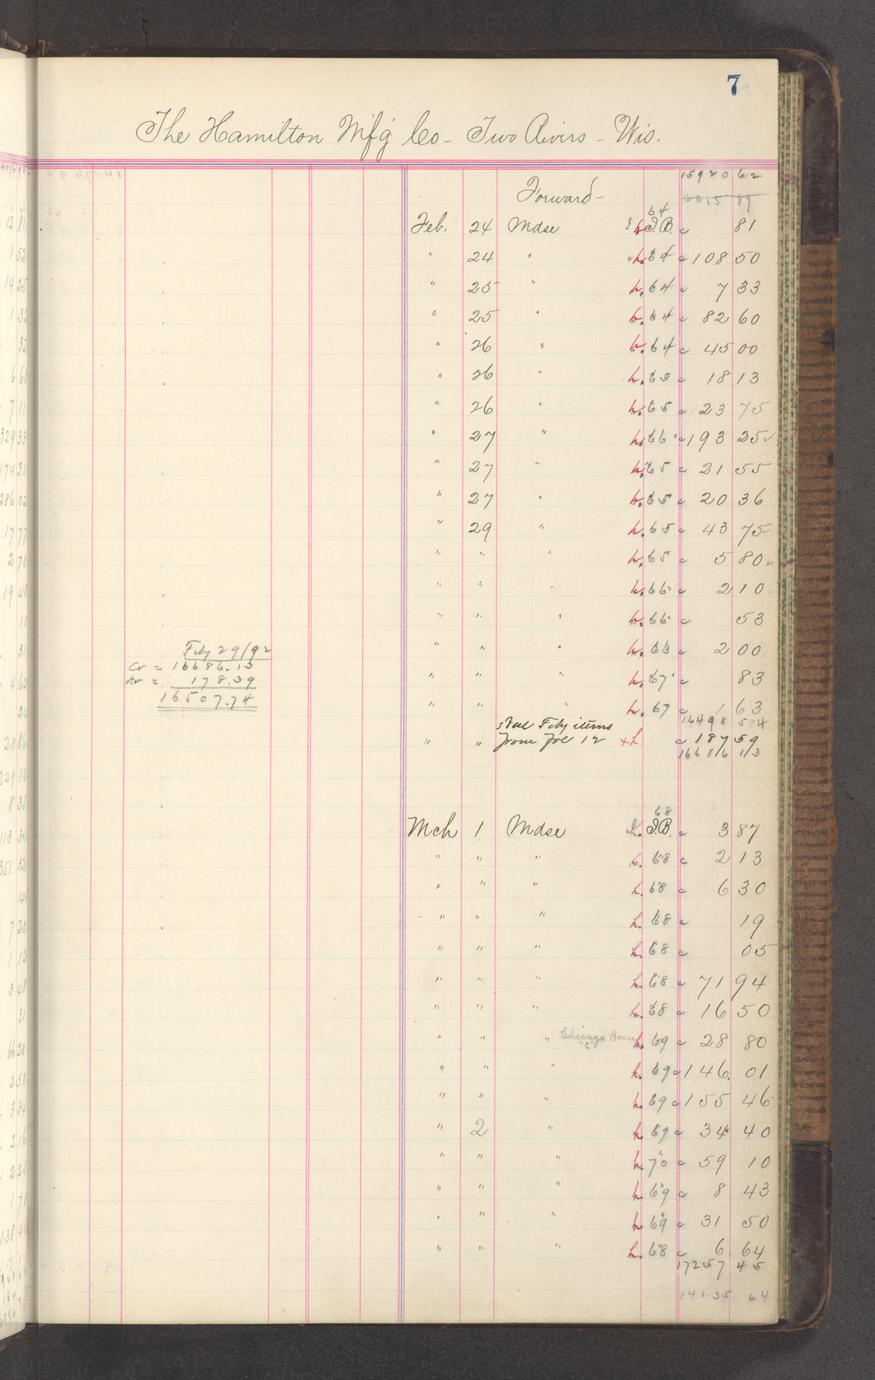 7
The Hamilton Mfg Co - Two Rivirs - Wis.
15920 62
Forward -
64
Feb. 24 Mdse I.B. c 81
" 24 " 64 c 108 50
" 25 " h. 64 c 7 33
" 25 " h. 64 c 82 60
" 26 " h. 64 c 45 00
" 26 " h. 65 c 18 13
" 26 " h. 65 c 23 75
" 27 " h. 66 c 193 25
" 27 " h. 65 c 21 55
" 27 " h. 65 c 20 36
" 29 " h. 65 c 43 75
" " " h. 65 c 5 80
" " " h. 66 c 2 10
" " " h. 66 c 53
" " " h. 66 c 2 00
" " " h. 67 c 83
" " h. 67 c 1 63
Feby 29/92
Cr = 16686.13
Dr = 178.39
16507.74
16498 54
Feby items
" " from Joe 12 x h c 187 59
16686 13
68
Mch 1 Mdse h. I.B. c 3 87
" " " h. 68 c 2 13
" " " h. 68 c 6 30
" " " h. 68 c 19
" " " h. 68 c 05
" " " h. 68 c 71 94
" " " h. 68 c 16 50
" " " Chicago House h. 69 c 28 80
"C"
" " " h. 69 c 146 01
" " " h. 69 c 155 46
" 2 " h. 69 c 34 40
" " " h. 70 c 59 10
" " " h. 69 c 8 43
" " " h. 69 c 31 50
" " " h. 68 c 6 64
17257 45
14135 64